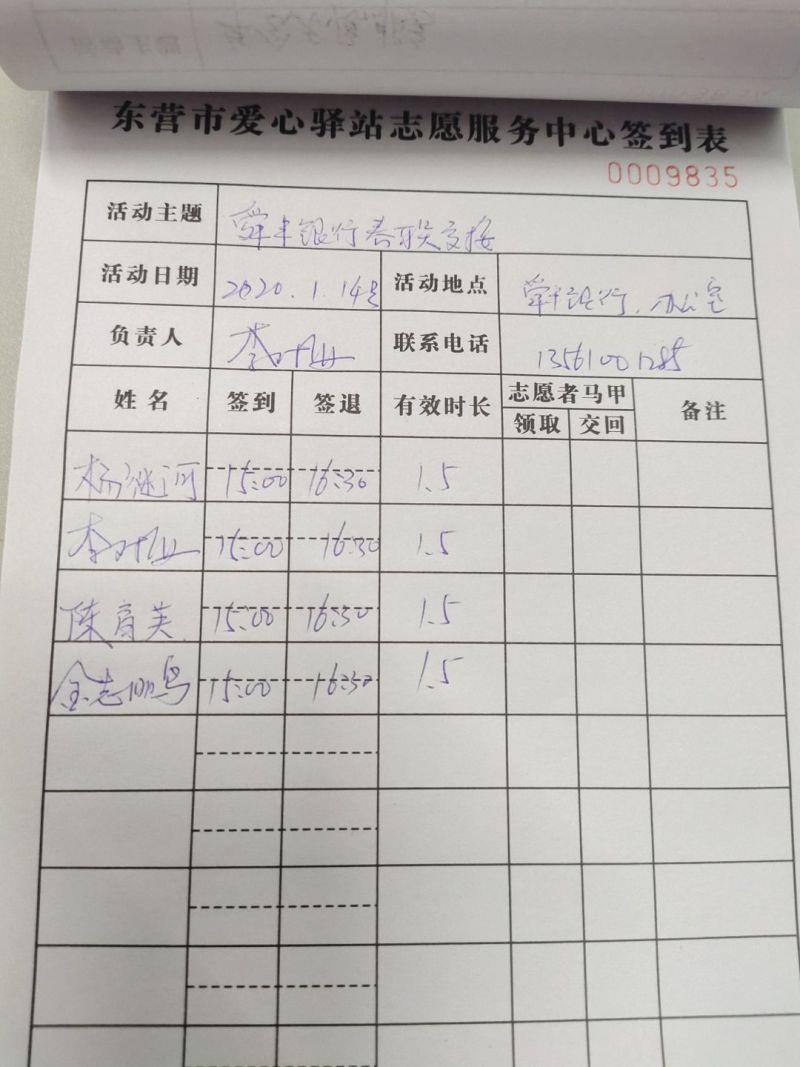 东营市爱心驿站志愿服务中心签到表
0009835
活动主题 舜丰银行春联交接
活动日期 2020.1.14号 活动地点 舜丰银行.办公室
负责人 李 联系电话 13561001285
姓名 签到 签退 有效时长 志愿者马甲 备注
领取 交回
杨继河 15:00 16:30 1.5
李 15:00 16:30 1.5
陈育英 15:00 16:30 1.5
金志鹏 15:00 16:30 1.5